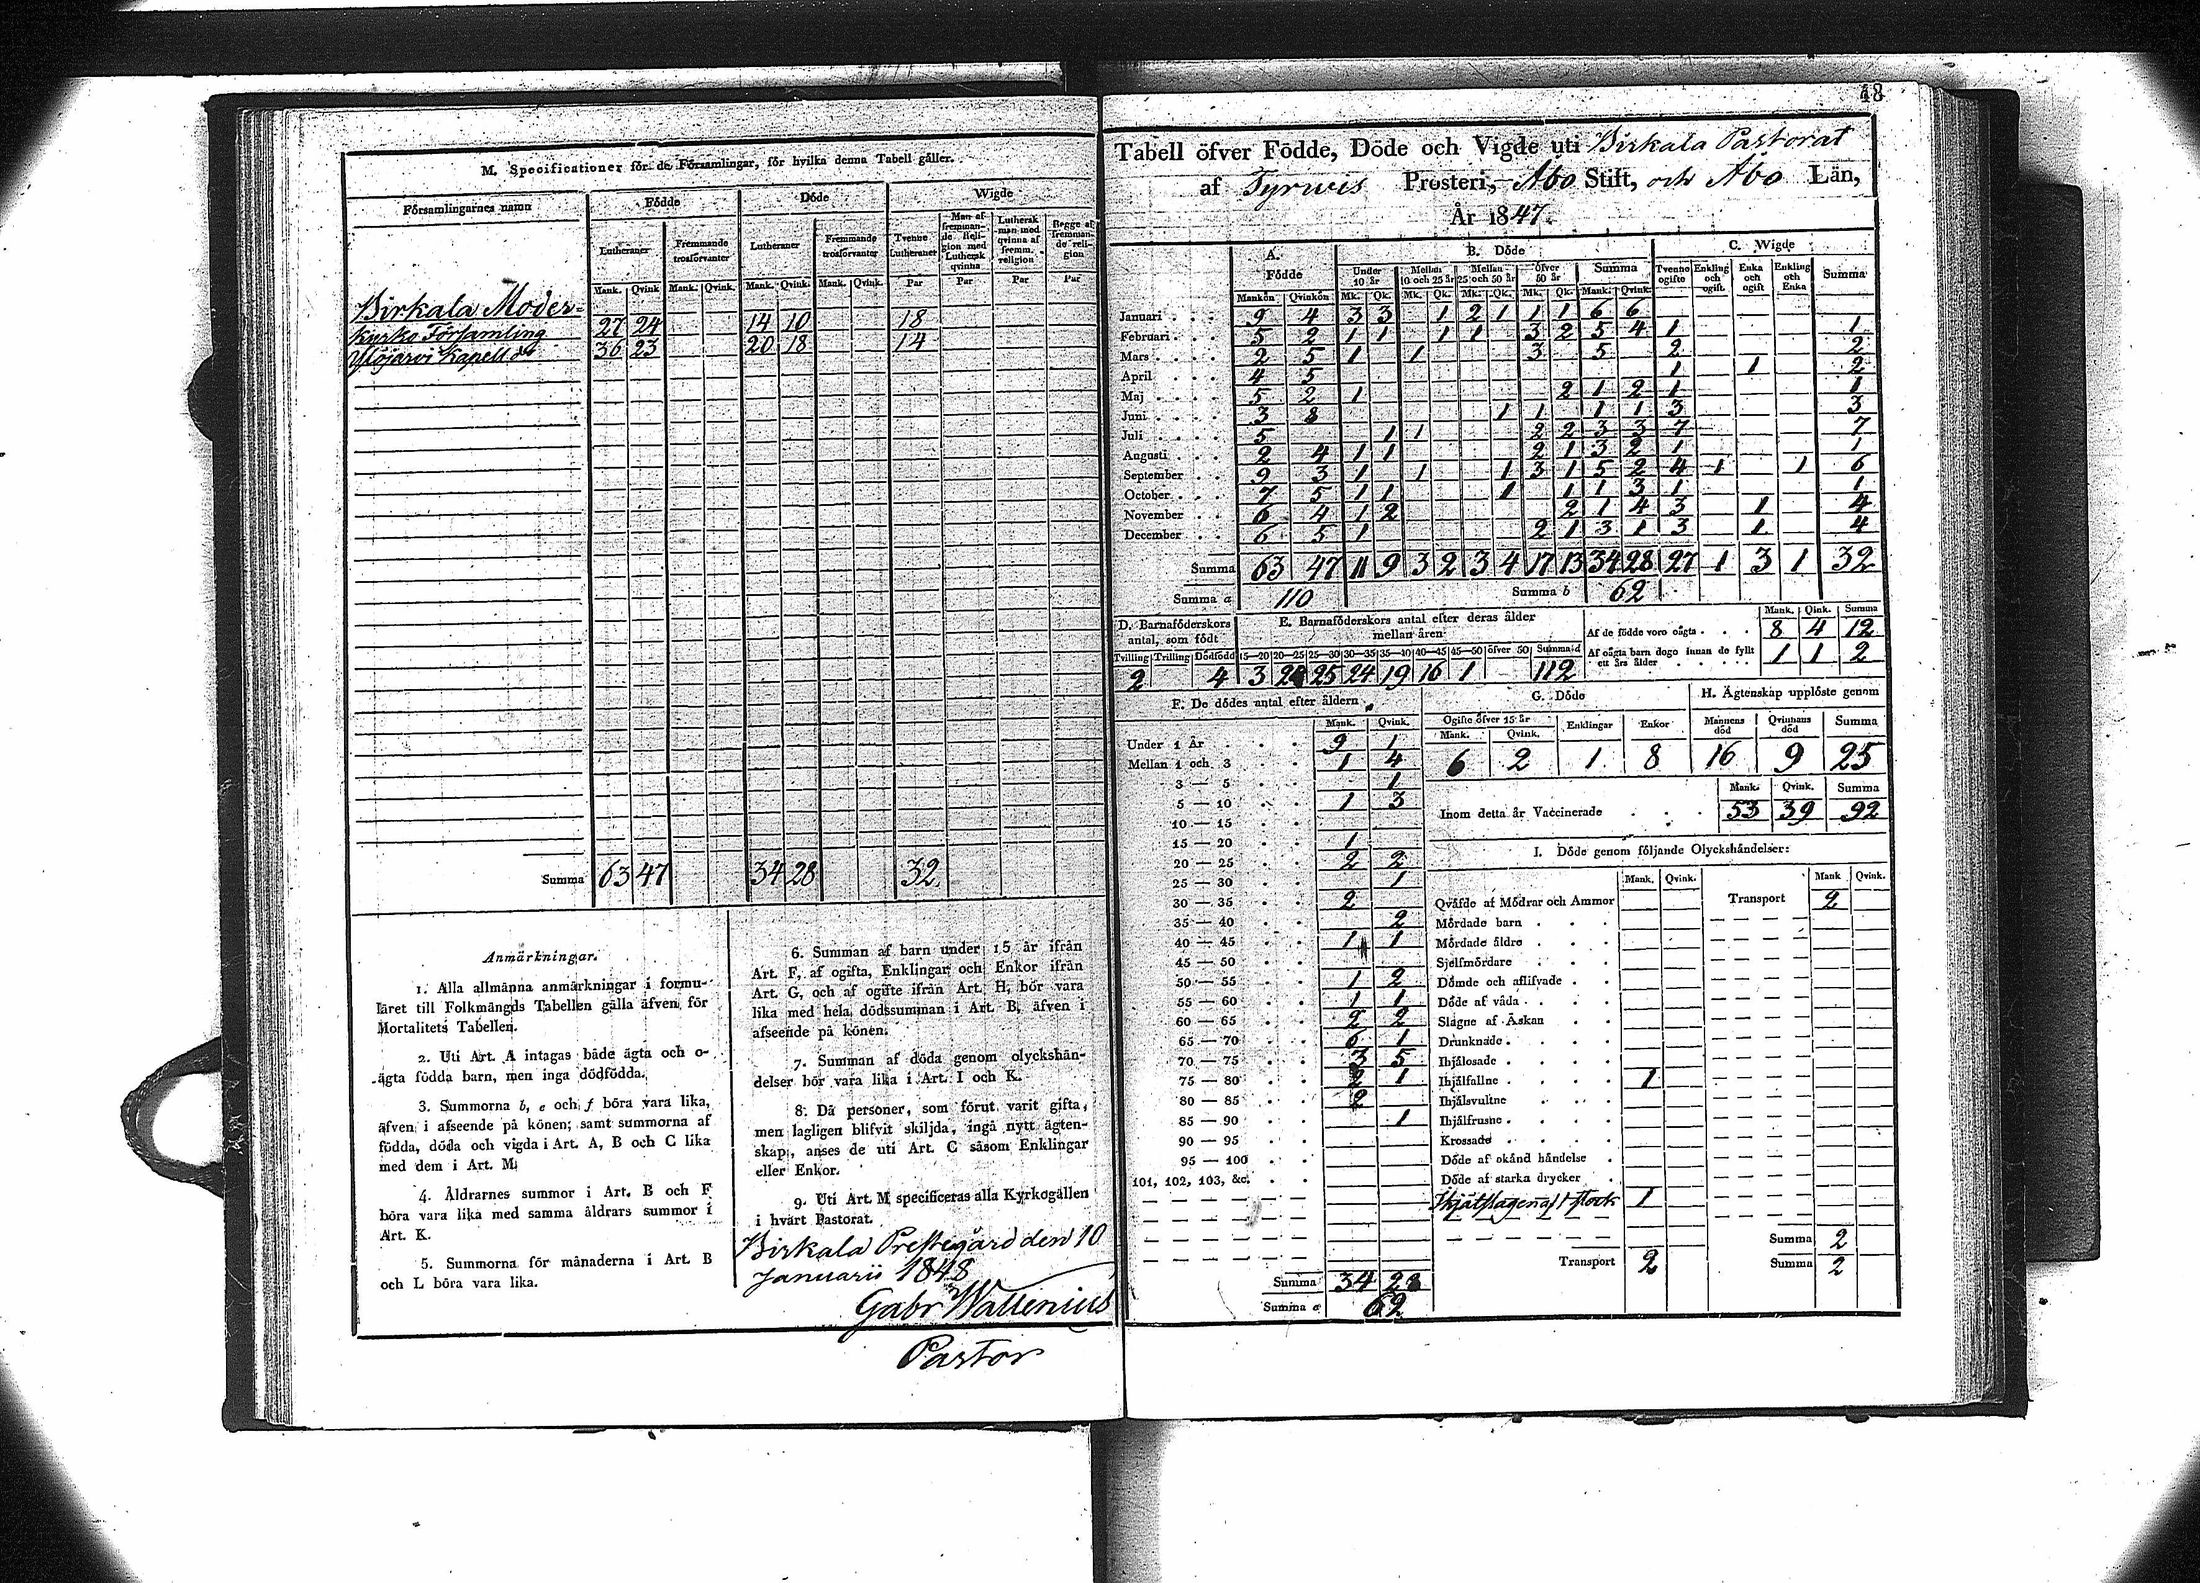 M. Specificationer för de Församlingar, för hvilka denna Tabell gäller.
Församlingarnes namn | Födde | Döde | Wigde
Lutheraner | Fremmande trosförvanter | Lutheraner | Fremmande trosförvanter | Tvenne Lutheraner | Man af fremmande Religion med Luthersk qvinna | Luthersk man med qvinna af fremm. religion | Begge af fremmande religion
Mank. | Qvink. | Mank. | Qvink. | Mank. | Qvink. | Mank. | Qvink. | Par | Par | Par | Par
Birkala Moder=
Kyrko Församling 27 24 14 10 18
Ylöjärvi Kapell do 36 23 20 18 14
Summa 63 47 34 28 32
Anmärkningar.
1. Alla allmänna anmärkningar i formu-
läret till Folkmängds Tabellen gälla äfven för
Mortalitets Tabellen.
2. Uti Art. A intagas både ägta och o-
ägta födda barn, men inga dödfödda.
3. Summorna b, e och f böra vara lika,
äfven i afseende på könen; samt summorna af
födda, döda och vigda i Art. A, B och C lika
med dem i Art. M.
4. Åldrarnes summor i Art. B och F
böra vara lika med samma åldrars summor i
Art. K.
5. Summorna för månaderna i Art. B
och L böra vara lika.
6. Summan af barn under 15 år ifrån
Art. F, af ogifta, Enklingar och Enkor ifrån
Art. G, och af ogifte ifrån Art. H, bör vara
lika med hela dödssumman i Art. B, äfven i
afseende på könen.
7. Summan af döda genom olyckshän-
delser bör vara lika i Art. I och K.
8. Då personer, som förut varit gifta,
men lagligen blifvit skiljda, ingå nytt ägten-
skap, anses de uti Art. C såsom Enklingar
eller Enkor.
9. Uti Art. M specificeras alla Kyrkogällen
i hvart Pastorat.
Birkala Prestegård den 10
Januarii 1848
Gabr Wallenius
Pastor
48
Tabell öfver Födde, Döde och Vigde uti Birkala Pastorat
af Tyrwis Prosteri, Åbo Stift, och Åbo Län,
År 1847.
A. Födde | B. Döde | C. Wigde
Under 10 år | Mellan 10 och 25 år | Mellan 25 och 50 år | öfver 50 år | Summa | Tvenne ogifte | Enkling och ogift | Enka och ogift | Enkling och Enka | Summa
Mankön | Qvinkön | Mk. | Qk. | Mk. | Qk. | Mk. | Qk. | Mk. | Qk. | Mank. | Qvink.
Januari 9 4 3 3 1 2 1 1 1 6 6
Februari 5 2 1 1 1 1 3 2 5 4 1 1
Mars 2 5 1 1 3 5 2 2
April 4 5 1 1 2
Maj 5 2 1 2 1 2 1 1
Juni 3 8 1 1 1 1 3 3
Juli 5 1 1 2 2 3 3 7 7
Augusti 2 4 1 1 2 1 3 2 1 1
September 9 3 1 1 1 3 1 5 2 4 1 1 6
October 7 5 1 1 1 1 1 3 1 1
November 6 4 1 2 2 1 4 3 1 4
December 6 5 1 2 1 3 1 3 1 4
Summa 63 47 11 9 3 2 3 4 17 13 34 28 27 1 3 1 32
Summa a 110 Summa b 62
D. Barnaföderskors antal, som födt
Tvilling | Trilling | Dödfödd
2 4
E. Barnaföderskors antal efter deras ålder mellan åren:
15—20 | 20—25 | 25—30 | 30—35 | 35—40 | 40—45 | 45—50 | öfver 50 | Summa d
3 24 25 24 19 16 1 112
Mank. | Qink. | Summa
Af de födde voro oägta 8 4 12
Af oägta barn dogo innan de fyllt ett års ålder 1 1 2
F. De dödes antal efter åldern
Mank. | Qvink.
Under 1 År 9 1
Mellan 1 och 3 1 4
3 — 5 1
5 — 10 1 3
10 — 15
15 — 20 1
20 — 25 2 2
25 — 30 1
30 — 35 2
35 — 40 2
40 — 45 1 1
45 — 50
50 — 55 1 2
55 — 60 1 1
60 — 65 2 2
65 — 70 6 1
70 — 75 3 5
75 — 80 2 1
80 — 85 2
85 — 90 1
90 — 95
95 — 100
101, 102, 103, &c.
Summa 34 28
Summa e 62
G. Döde
Ogifte öfver 15 år | Enklingar | Enkor
Mank. | Qvink.
6 2 1 8
H. Ägtenskap upplöste genom
Mannens död | Qvinnans död | Summa
16 9 25
Mank. | Qvink. | Summa
Inom detta år Vaccinerade 53 39 92
I. Döde genom följande Olyckshändelser:
Mank. | Qvink. | Mank | Qvink.
Qväfde af Mödrar och Ammor | Transport 2
Mördade barn
Mördade äldre
Sjelfmördare
Dömde och aflifvade
Döde af våda
Slagne af Åskan
Drunknade
Ihjälosade
Ihjälfallne 1
Ihjälsvultne
Ihjälfrusne
Krossade
Döde af okänd händelse
Döde af starka drycker
Ihjälslagen af stock 1
Summa 2
Transport 2 Summa 2